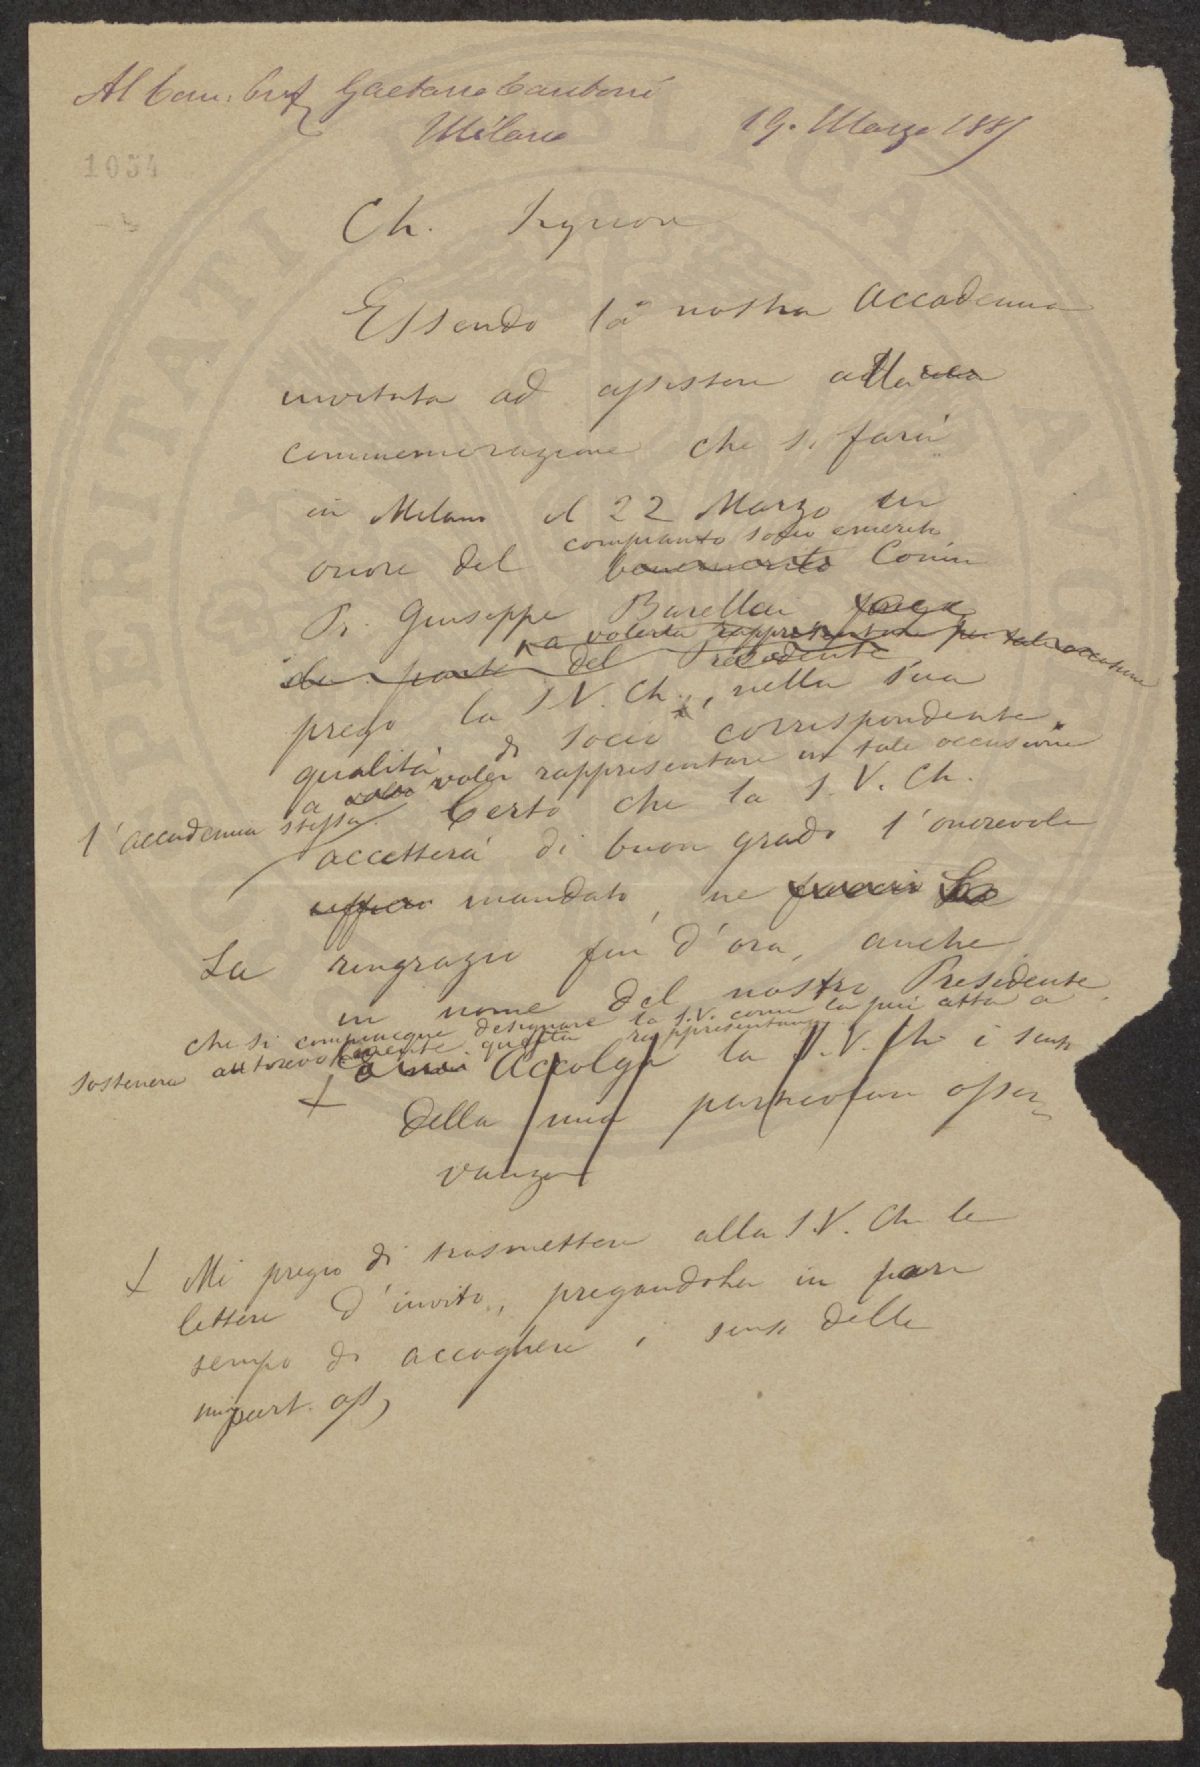 Al Cav. Prof. Gaetano Cantoni
Milano 19. Marzo 1885
1054
Ch. Signore
Essendo la nostra Accademia
invitata ad assistere alla
commemorazione che si farà
in Milano il 22 Marzo in
compianto socio emerito
onore del benemerito Comm
Pr. Giuseppe Barellai
a volerla rappresentare per tale occasione
da parte del Presidente
prego la S.V. Ch., nella sua
qualità di socio corrispondente
a voler rappresentare in tale occasione
l'accademia stessa. Certo che la S. V. Ch.
accetterà di buon grado l'onorevole
ufficio mandato, ne
La ringrazio fin d'ora, anche
in nome del nostro Presidente
che si compiacque designare la S.V. come la più atta a
sostenere autorevolmente questa rappresentanza
Accolga la S. V. Ch i sensi
della mia particolare osser
vanza
Mi pregio di trasmettere alla S.V. Ch le
lettere d'invito, pregandola in pari
tempo di accogliere i sensi della
mia part. oss,